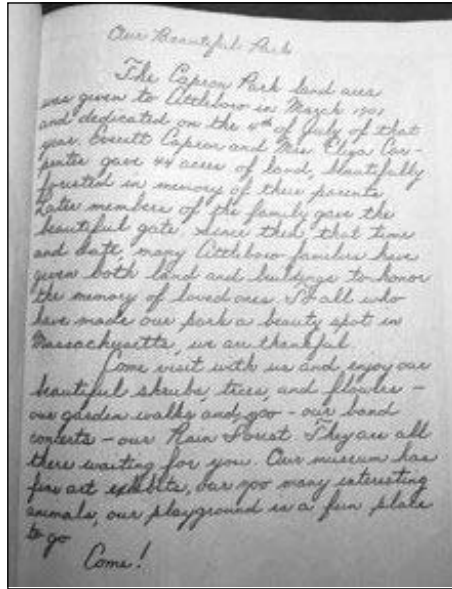 Our Beautiful Park
The Capron Park land area
was given to Attleboro in March 1901
and dedicated on the 4th of July of that
year. Everett Capron and Mrs. Eliza Car-
penter gave 44 acres of land, beautifully
forested in memory of their parents.
Later members of the family gave the
beautiful gate. Since then that time
and date, many Attleboro families have
given both land and buildings to honor
the memory of loved ones. To all who
have made our park a beauty spot in
Massachusetts, we are thankful.
Come visit with us and enjoy our
beautiful shrubs, trees, and flowers -
our garden walks and zoo - our band
concerts - our Rain Forest. They are all
there waiting for you. Our museum has
fine art exhibits, our zoo many interesting
animals, our playground is a fun place
to go
Come!